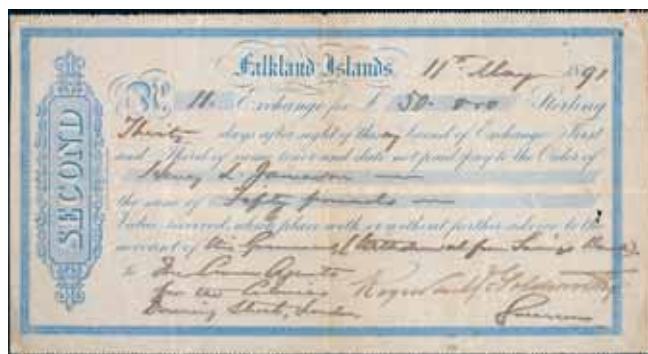 SECOND
Falkland Islands 11th May 1891
No. 11. Exchange for £ 50. 0.0 Sterling
Thirty days after sight of this my Second of Exchange First
and Third of same tenor and date not paid pay to the Order of
Henry L Jameson
the sum of Fifty pounds
Value received, which place with or without further advice to the
account of this Government (Withdrawal from Savings Bank)
to The Crown Agents
for the Colonies
Downing Street, London
Roger Goldsworthy
Governor